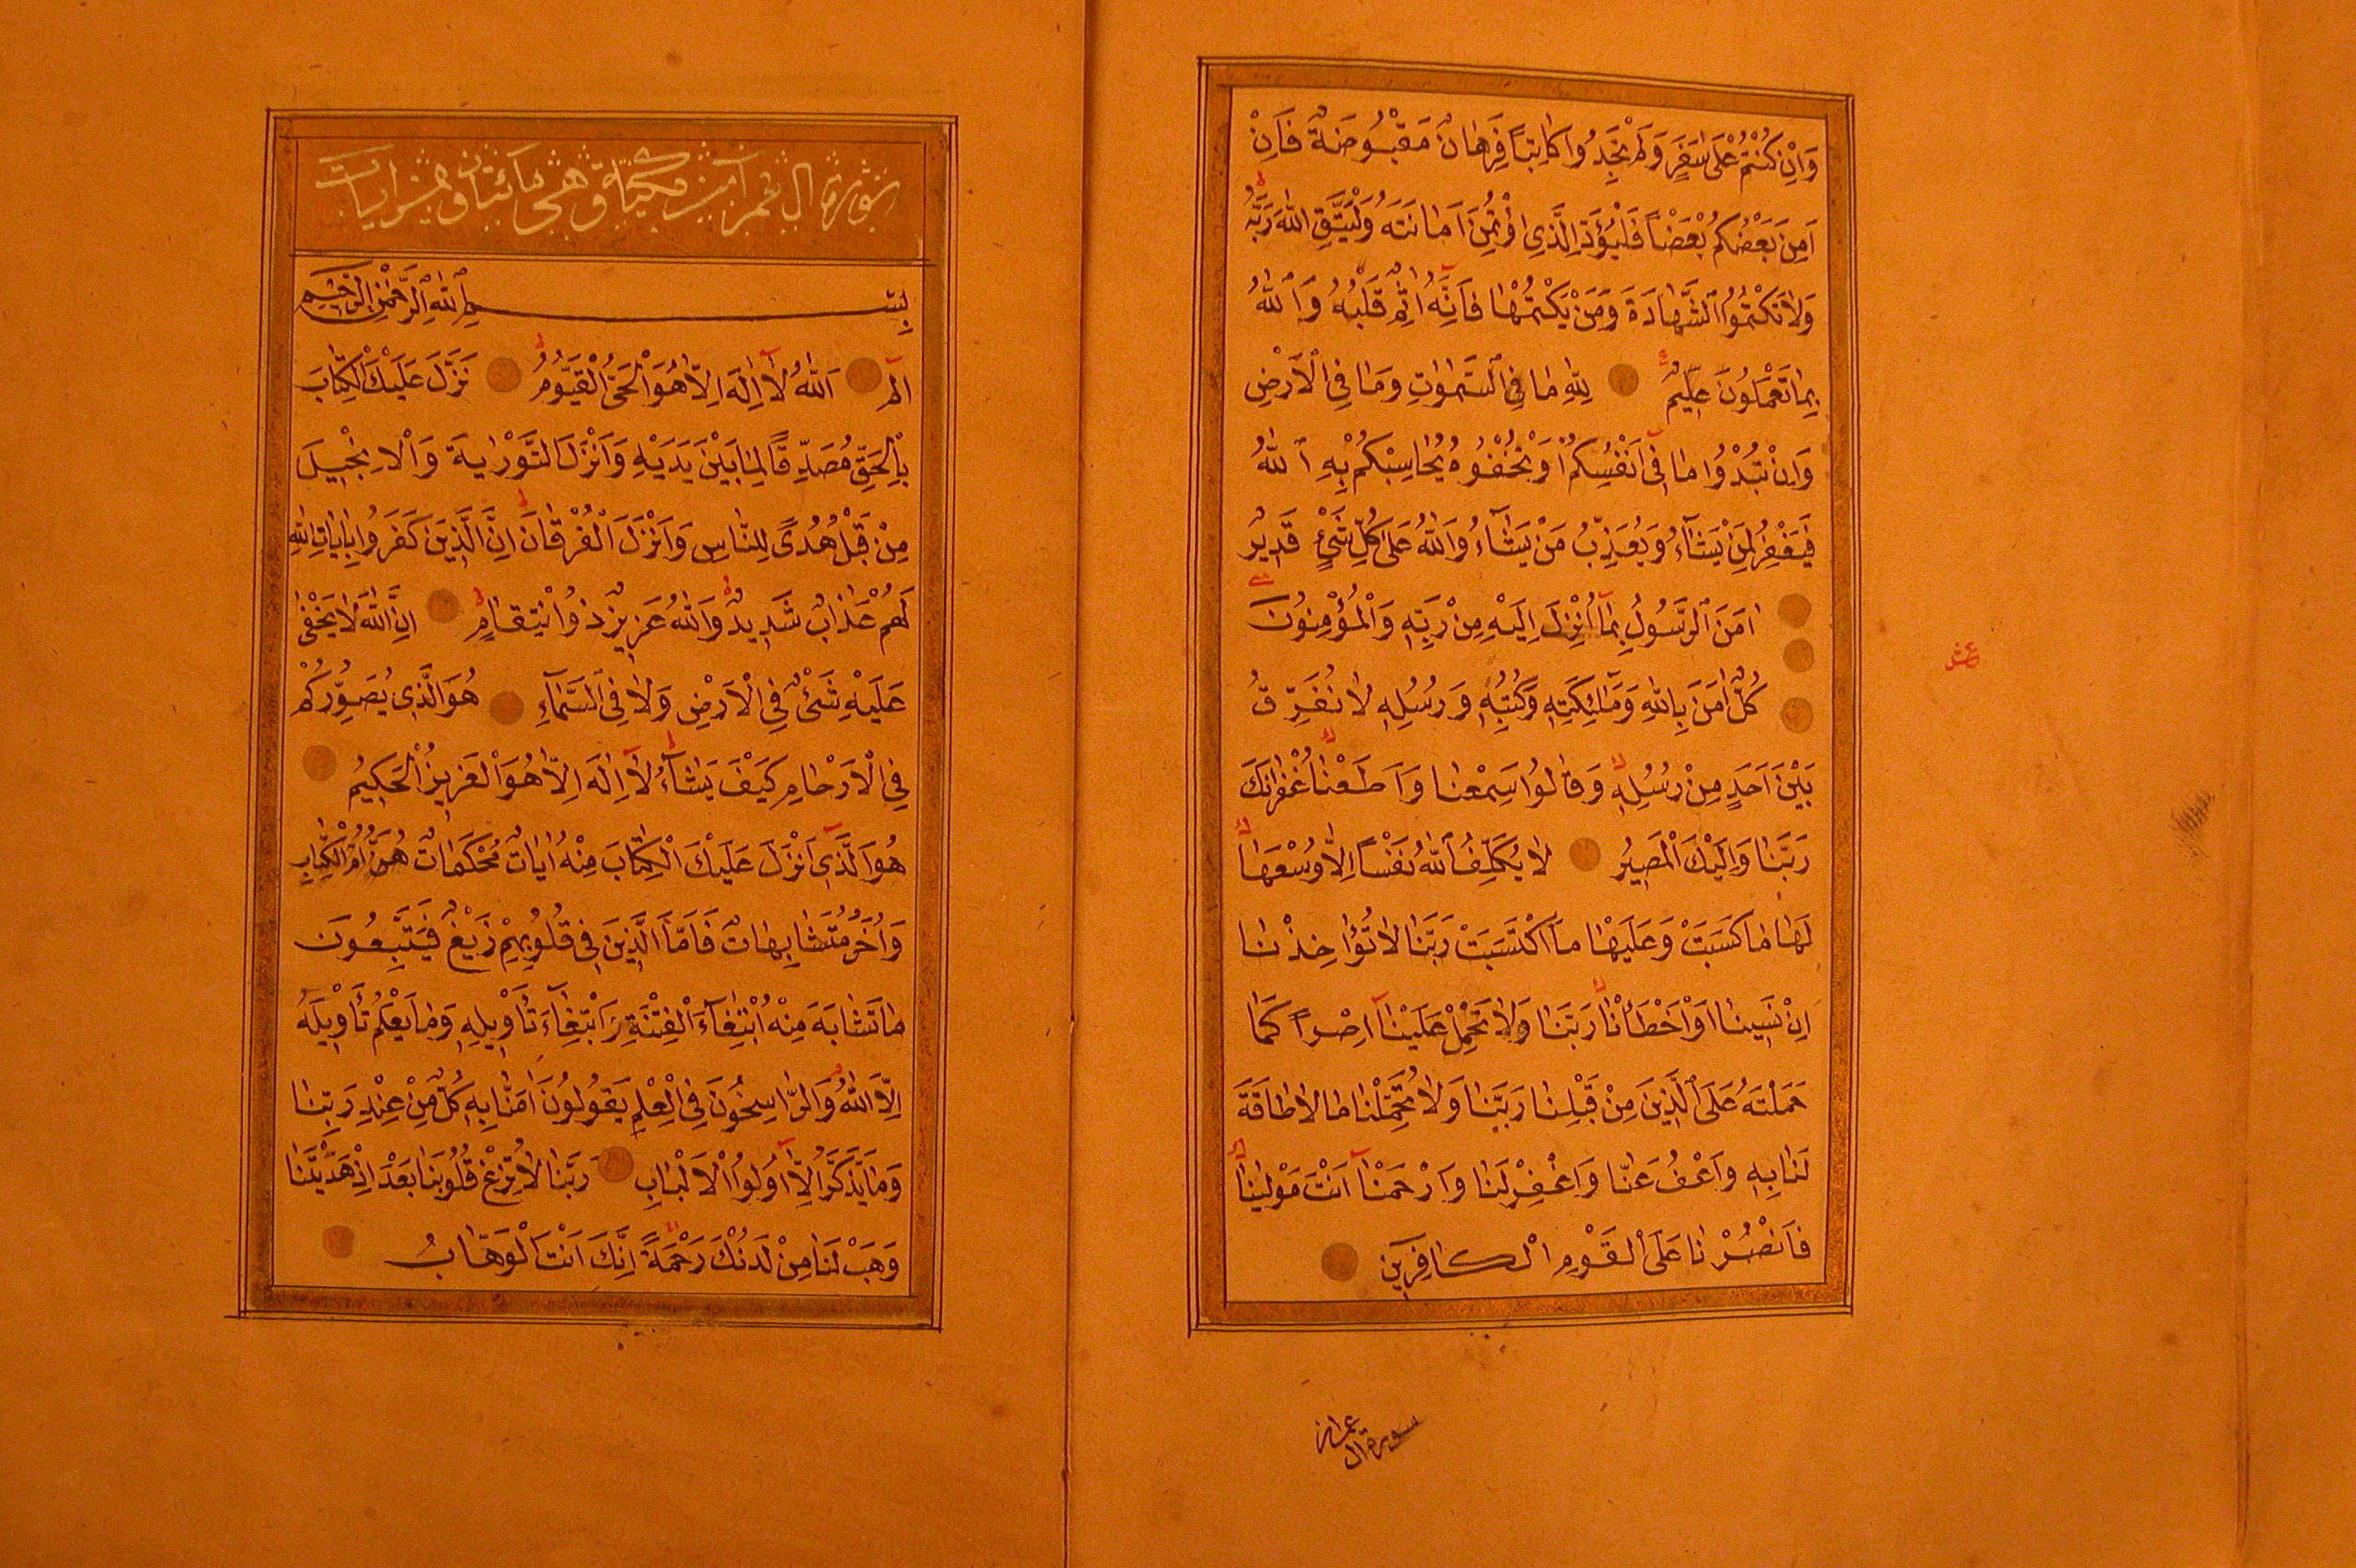 وَاِنْ كُنْتُمْ عَلٰى سَفَرٍ وَلَمْ تَجِدُوا كَاتِبًا فَرِهَانٌ مَقْبُوضَةٌ فَاِنْ
اَمِنَ بَعْضُكُمْ بَعْضًا فَلْيُؤَدِّ الَّذِى اؤْتُمِنَ اَمَانَتَهُ وَلْيَتَّقِ اللّٰهَ رَبَّهُ
وَلَا تَكْتُمُوا الشَّهَادَةَ وَمَنْ يَكْتُمْهَا فَاِنَّهُ اٰثِمٌ قَلْبُهُ وَاللّٰهُ
بِمَا تَعْمَلُونَ عَلِيمٌ لِلّٰهِ مَا فِى السَّمٰوَاتِ وَمَا فِى الْاَرْضِ
وَاِنْ تُبْدُوا مَا فِى اَنْفُسِكُمْ اَوْ تُخْفُوهُ يُحَاسِبْكُمْ بِهِ اللّٰهُ
فَيَغْفِرُ لِمَنْ يَشَاءُ وَيُعَذِّبُ مَنْ يَشَاءُ وَاللّٰهُ عَلٰى كُلِّ شَىْءٍ قَدِيرٌ
اٰمَنَ الرَّسُولُ بِمَا اُنْزِلَ اِلَيْهِ مِنْ رَبِّهِ وَالْمُؤْمِنُونَ
عشر
كُلٌّ اٰمَنَ بِاللّٰهِ وَمَلٰئِكَتِهِ وَكُتُبِهِ وَرُسُلِهِ لَا نُفَرِّقُ
بَيْنَ اَحَدٍ مِنْ رُسُلِهِ وَقَالُوا سَمِعْنَا وَاَطَعْنَا غُفْرَانَكَ
رَبَّنَا وَاِلَيْكَ الْمَصِيرُ لَا يُكَلِّفُ اللّٰهُ نَفْسًا اِلَّا وُسْعَهَا
لَهَا مَا كَسَبَتْ وَعَلَيْهَا مَا اكْتَسَبَتْ رَبَّنَا لَا تُؤَاخِذْنَا
اِنْ نَسِينَا اَوْ اَخْطَأْنَا رَبَّنَا وَلَا تَحْمِلْ عَلَيْنَا اِصْرًا كَمَا
حَمَلْتَهُ عَلَى الَّذِينَ مِنْ قَبْلِنَا رَبَّنَا وَلَا تُحَمِّلْنَا مَا لَا طَاقَةَ
لَنَا بِهِ وَاعْفُ عَنَّا وَاغْفِرْ لَنَا وَارْحَمْنَا اَنْتَ مَوْلٰينَا
فَانْصُرْنَا عَلَى الْقَوْمِ الْكَافِرِينَ
سورة ال عمران
سورة ال عمرٰن مكية وهى مائتان وعشر ايات
بِسْمِ اللّٰهِ الرَّحْمٰنِ الرَّحِيمِ
الٓمٓ اَللّٰهُ لَا اِلٰهَ اِلَّا هُوَ الْحَىُّ الْقَيُّومُ نَزَّلَ عَلَيْكَ الْكِتَابَ
بِالْحَقِّ مُصَدِّقًا لِمَا بَيْنَ يَدَيْهِ وَاَنْزَلَ التَّوْرٰيةَ وَالْاِنْجِيلَ
مِنْ قَبْلُ هُدًى لِلنَّاسِ وَاَنْزَلَ الْفُرْقَانَ اِنَّ الَّذِينَ كَفَرُوا بِاٰيَاتِ اللّٰهِ
لَهُمْ عَذَابٌ شَدِيدٌ وَاللّٰهُ عَزِيزٌ ذُو انْتِقَامٍ اِنَّ اللّٰهَ لَا يَخْفٰى
عَلَيْهِ شَىْءٌ فِى الْاَرْضِ وَلَا فِى السَّمَاءِ هُوَ الَّذِى يُصَوِّرُكُمْ
فِى الْاَرْحَامِ كَيْفَ يَشَاءُ لَا اِلٰهَ اِلَّا هُوَ الْعَزِيزُ الْحَكِيمُ
هُوَ الَّذِى اَنْزَلَ عَلَيْكَ الْكِتَابَ مِنْهُ اٰيَاتٌ مُحْكَمَاتٌ هُنَّ اُمُّ الْكِتَابِ
وَاُخَرُ مُتَشَابِهَاتٌ فَاَمَّا الَّذِينَ فِى قُلُوبِهِمْ زَيْغٌ فَيَتَّبِعُونَ
مَا تَشَابَهَ مِنْهُ ابْتِغَاءَ الْفِتْنَةِ وَابْتِغَاءَ تَأْوِيلِهِ وَمَا يَعْلَمُ تَأْوِيلَهُ
اِلَّا اللّٰهُ وَالرَّاسِخُونَ فِى الْعِلْمِ يَقُولُونَ اٰمَنَّا بِهِ كُلٌّ مِنْ عِنْدِ رَبِّنَا
وَمَا يَذَّكَّرُ اِلَّا اُولُوا الْاَلْبَابِ رَبَّنَا لَا تُزِغْ قُلُوبَنَا بَعْدَ اِذْ هَدَيْتَنَا
وَهَبْ لَنَا مِنْ لَدُنْكَ رَحْمَةً اِنَّكَ اَنْتَ الْوَهَّابُ